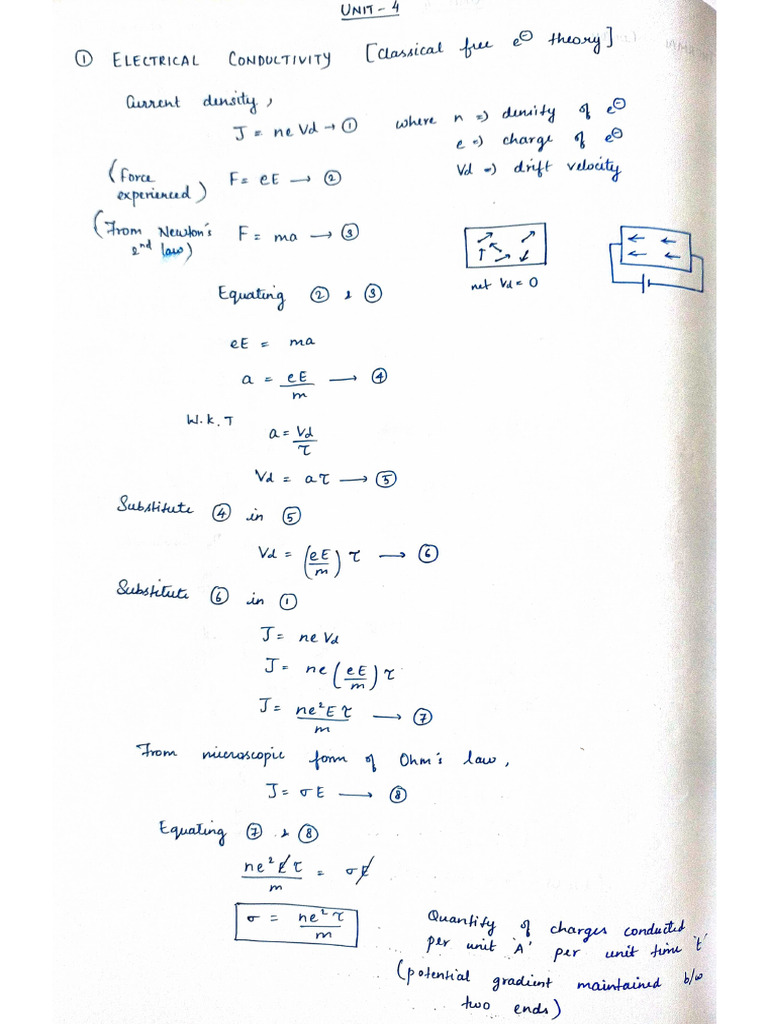 UNIT - 4
① ELECTRICAL CONDUCTIVITY [Classical free e⊖ theory]
Current density,
J = neVd → ①
where n => density of e⊖
e => charge of e⊖
Vd => drift velocity
(Force experienced) F = eE → ②
(From Newton's 2nd law) F = ma → ③
net Vd = 0
Equating ② & ③
eE = ma
a = eE/m → ④
W.K.T
a = Vd/τ
Vd = aτ → ⑤
Substitute ④ in ⑤
Vd = (eE/m) τ → ⑥
Substitute ⑥ in ①
J = neVd
J = ne(eE/m)τ
J = ne²Eτ/m → ⑦
From microscopic form of Ohm's law,
J = σE → ⑧
Equating ⑦ & ⑧
ne²Eτ/m = σE
σ = ne²τ/m
Quantity of charges conducted
per unit 'A' per unit time 't'
(potential gradient maintained b/w
two ends)